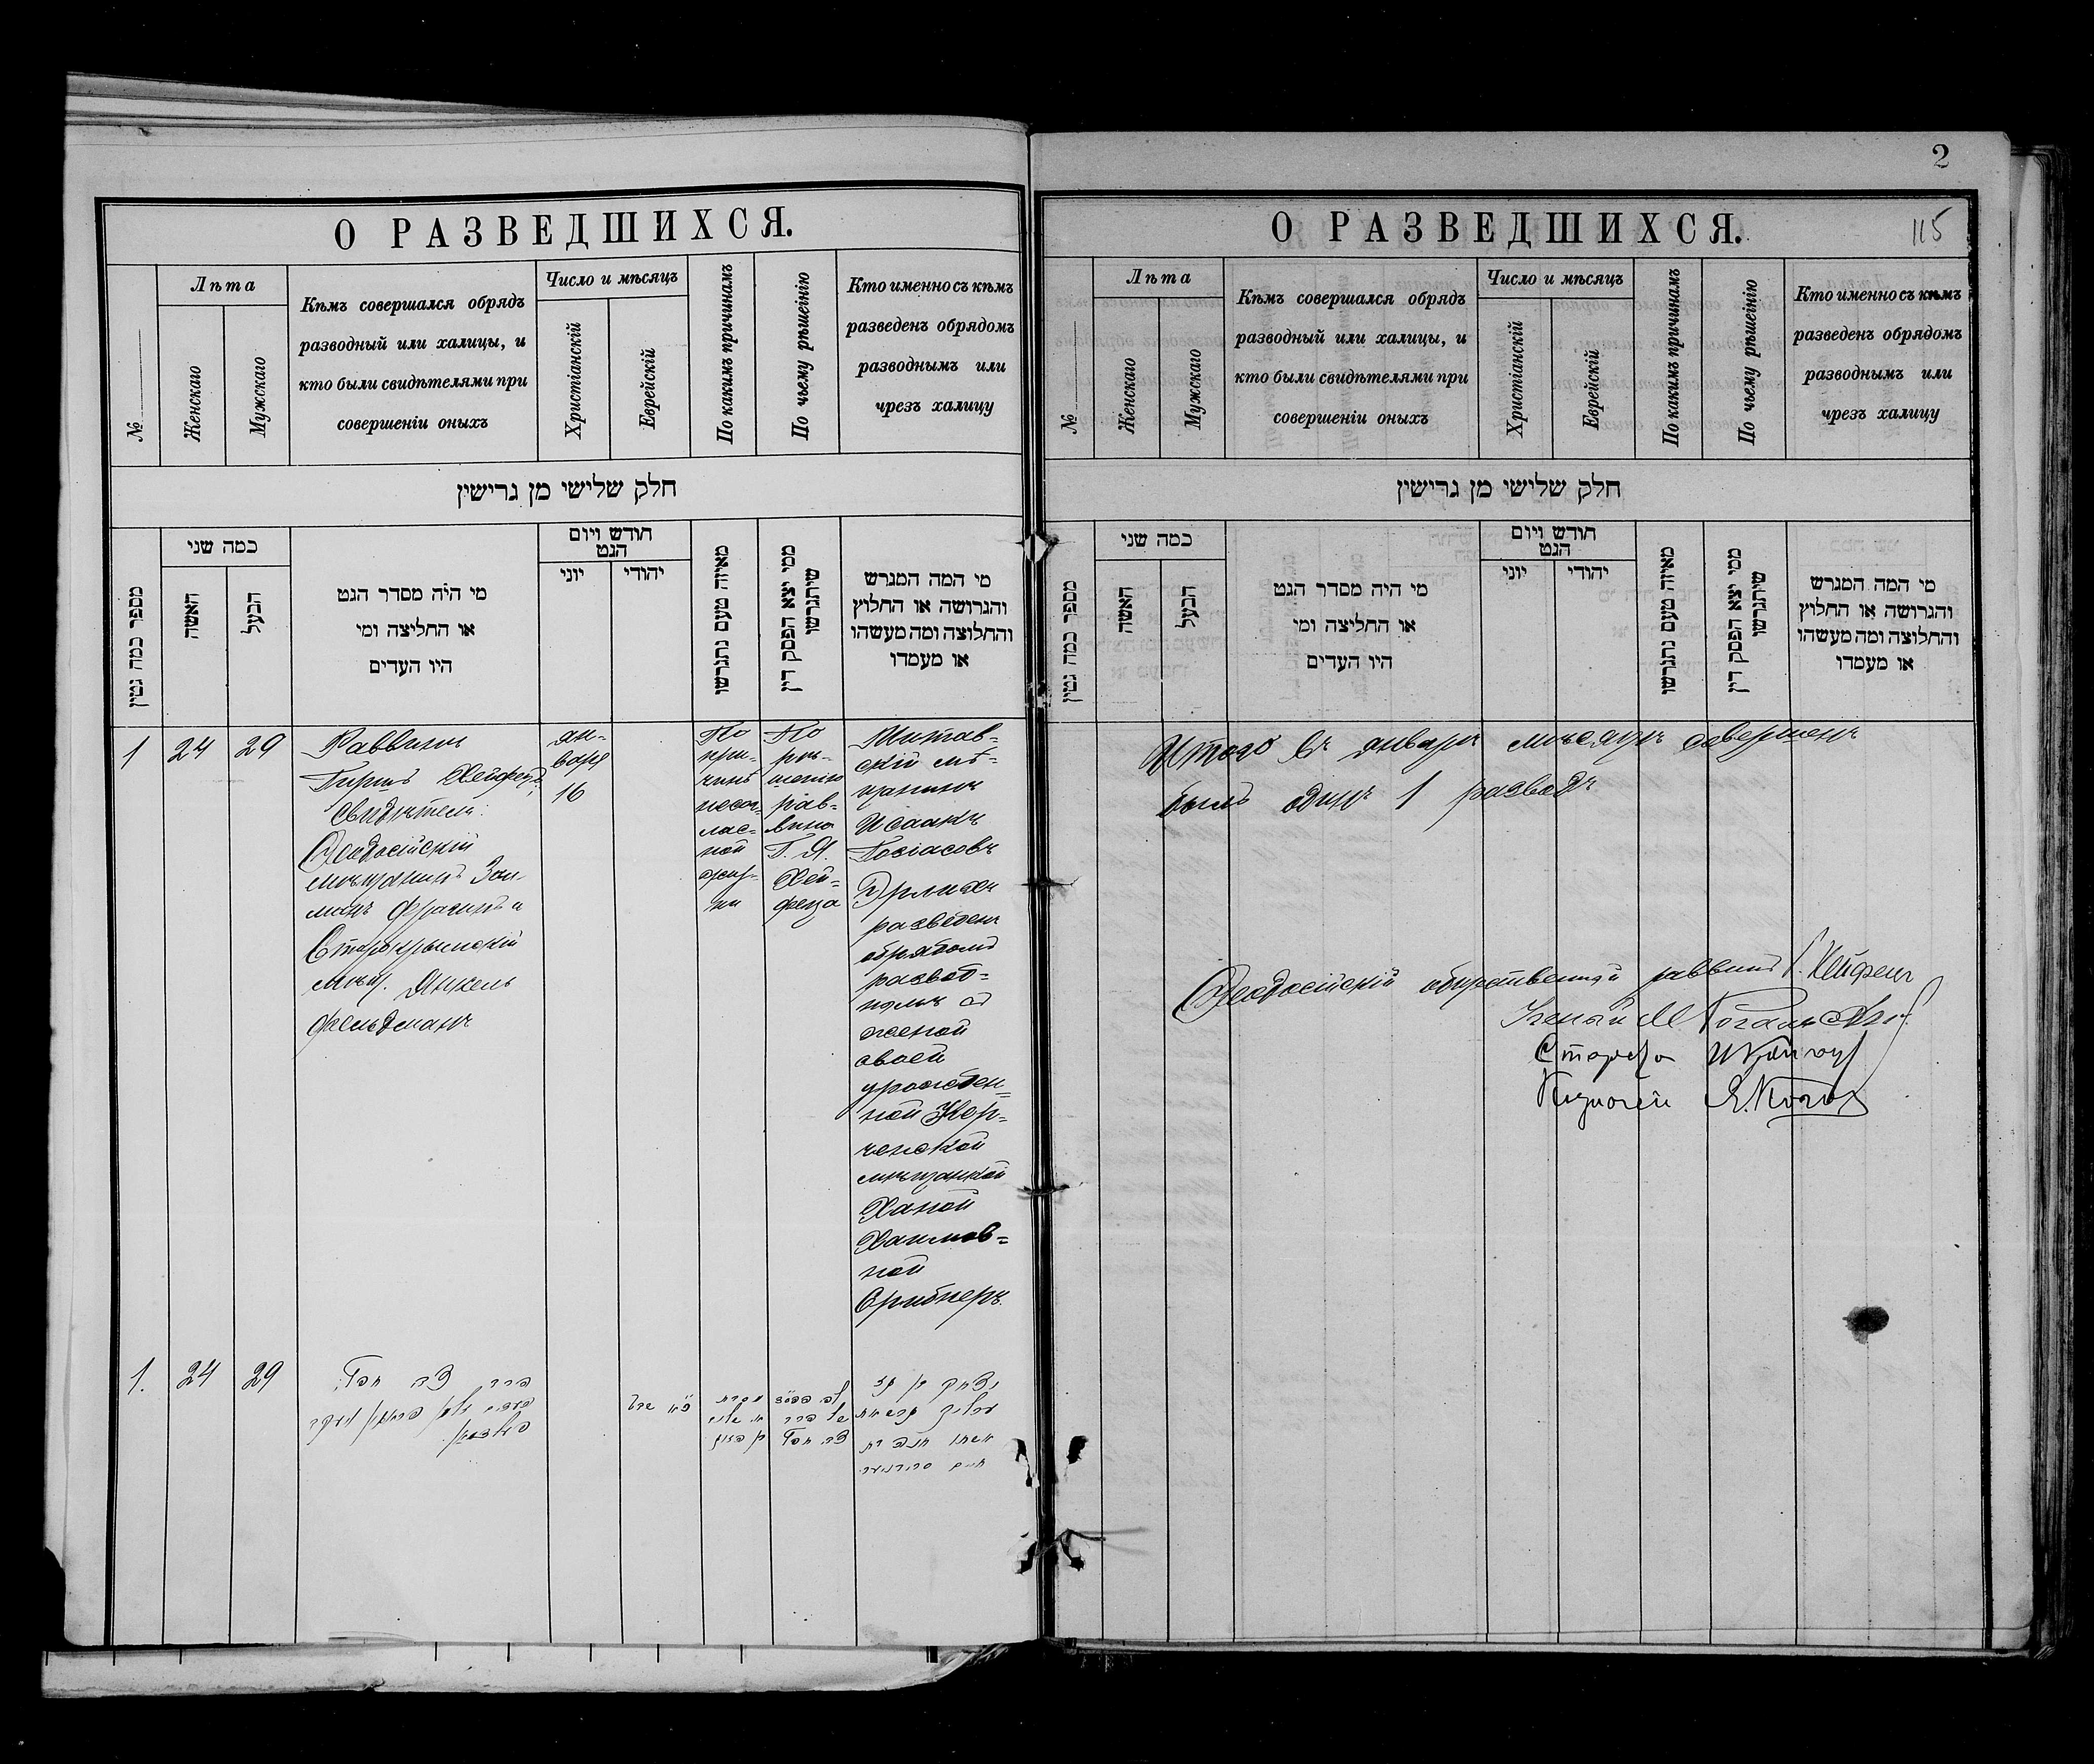 О РАЗВЕДШИХСЯ.
№
Лѣта
Женскаго
Мужскаго
Кѣмъ совершался обрядъ
разводный или халицы, и
кто были свидѣтелями при
совершеніи оныхъ
Число и мѣсяцъ
Христіанскій
Еврейскій
По какимъ причинамъ
По чьему рѣшеінію
Кто именно съ кѣмъ
разведенъ обрядомъ
разводнымъ или
чрезъ халицу
חלק שלישי מן גרישין
מספר כמה גטין
כמה שני
האשה
הבעל
מי היה מסדר הגט
או החליצה ומי
היו העדים
חודש ויום
הגט
יוני
יהודי
מאיזה טעם נתגרשו
ממי יצא הפסק דין
שיתגרשו
מי המה המגרש
והגרושה או החלוץ
והחלוצה ומה מעשהו
או מעמדו
1
24
29
Раввинъ
Гиршъ Хейфецъ,
Свидѣтели:
Ѳеодосійскій
мѣщанинъ Зал-
манъ и
Старокрымскій
мѣщ. Янкель
Фельдманъ
ян-
варя
16
По
при-
чинѣ
несог-
лас-
ной
жиз-
ни
По
рѣ-
шенію
рав-
вина
Г. Я.
Хей-
феца
Митав-
скій мѣ-
щанинъ
Исаакъ
Эрлихъ
разведенъ
обрядомъ
развод-
нымъ съ
женой
своей
урожден-
ной Кер-
ченской
мѣщанкой
Ханой
Хаимов-
ной
1.
24
29
О РАЗВЕДШИХСЯ.
2
115
№
Лѣта
Женскаго
Мужскаго
Кѣмъ совершался обрядъ
разводный или халицы, и
кто были свидѣтелями при
совершеніи оныхъ
Число и мѣсяцъ
Христіанскій
Еврейскій
По какимъ причинамъ
По чьему рѣшеінію
Кто именно съ кѣмъ
разведенъ обрядомъ
разводнымъ или
чрезъ халицу
חלק שלישי מן גרישין
מספר כמה גטין
כמה שני
האשה
הבעל
מי היה מסדר הגט
או החליצה ומי
היו העדים
חודש ויום
הגט
יוני
יהודי
מאיזה טעם נתגרשו
ממי יצא הפסק דין
שיתגרשו
מי המה המגרש
והגרושה או החלוץ
והחלוצה ומה מעשהו
או מעמדו
Итого въ январѣ мѣсяцѣ совершенъ
былъ одинъ 1 разводъ
Ѳеодосійскій общественный раввинъ Г. Хейфецъ
Ученый М
Староста
Казначей